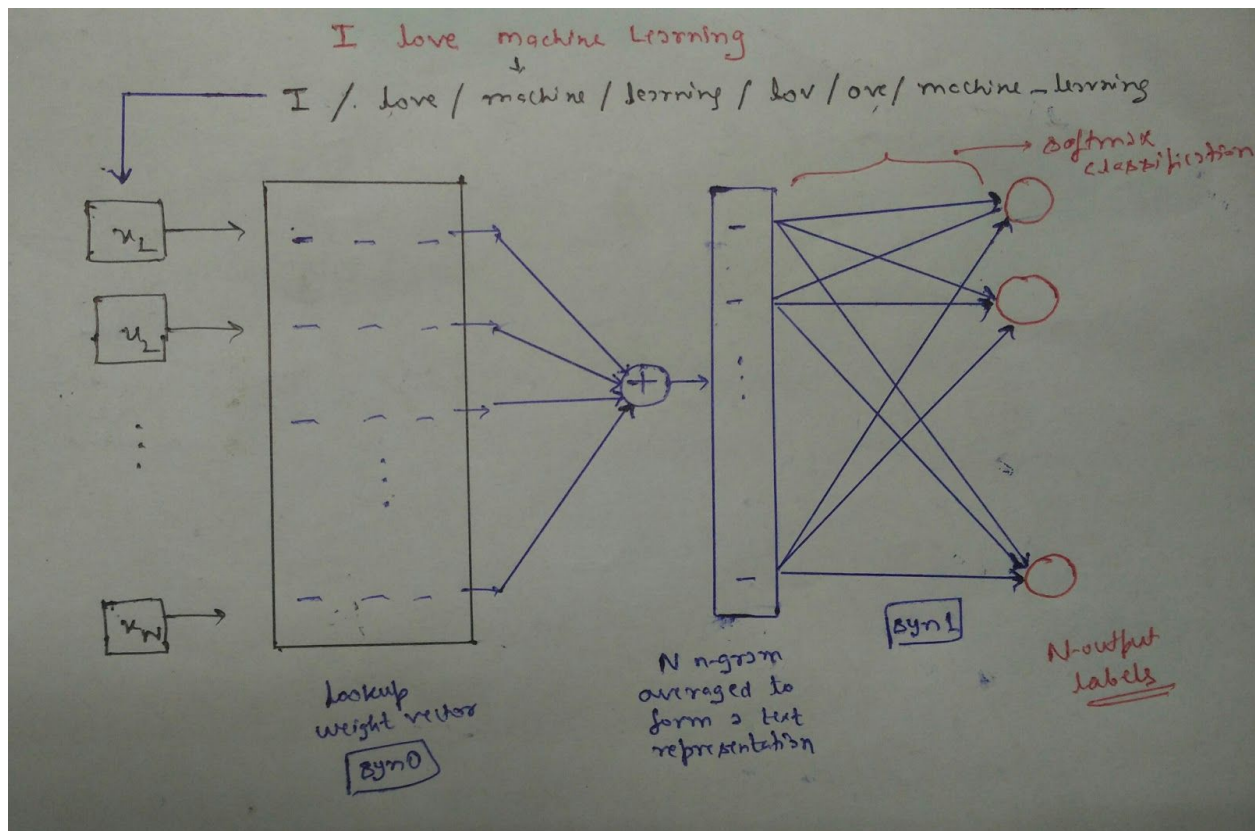 I love machine Learning
I / love / machine / learning / lov / ove / machine_learning
softmax
classification
x1
x2
xN
+
syn1
Lookup
weight vector
syn0
N n-gram
averaged to
form a text
representation
N-output
labels